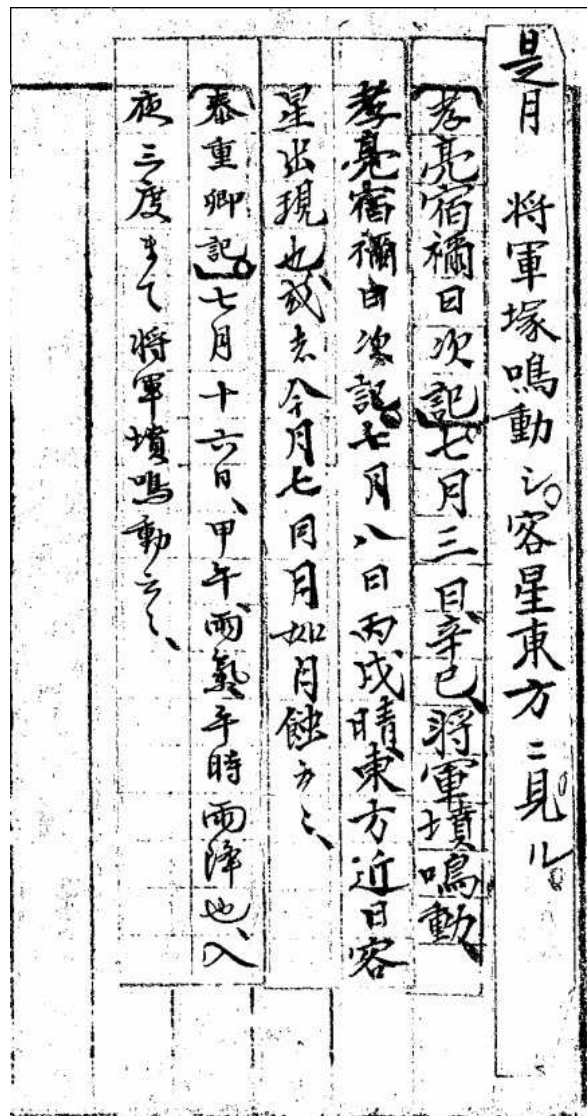 是月　将軍塚鳴動シ、客星東方ニ見ル。
〔孝亮宿禰日次記〕七月三日、辛巳、将軍墳鳴動、
孝亮宿禰日次記、七月八日丙戌晴、東方近日客
星出現也、或云今月七日月如月蝕云々、
〔泰重卿記〕七月十六日、甲午、雨氣、午時雨降也、入
夜三度まて将軍墳鳴動云々、